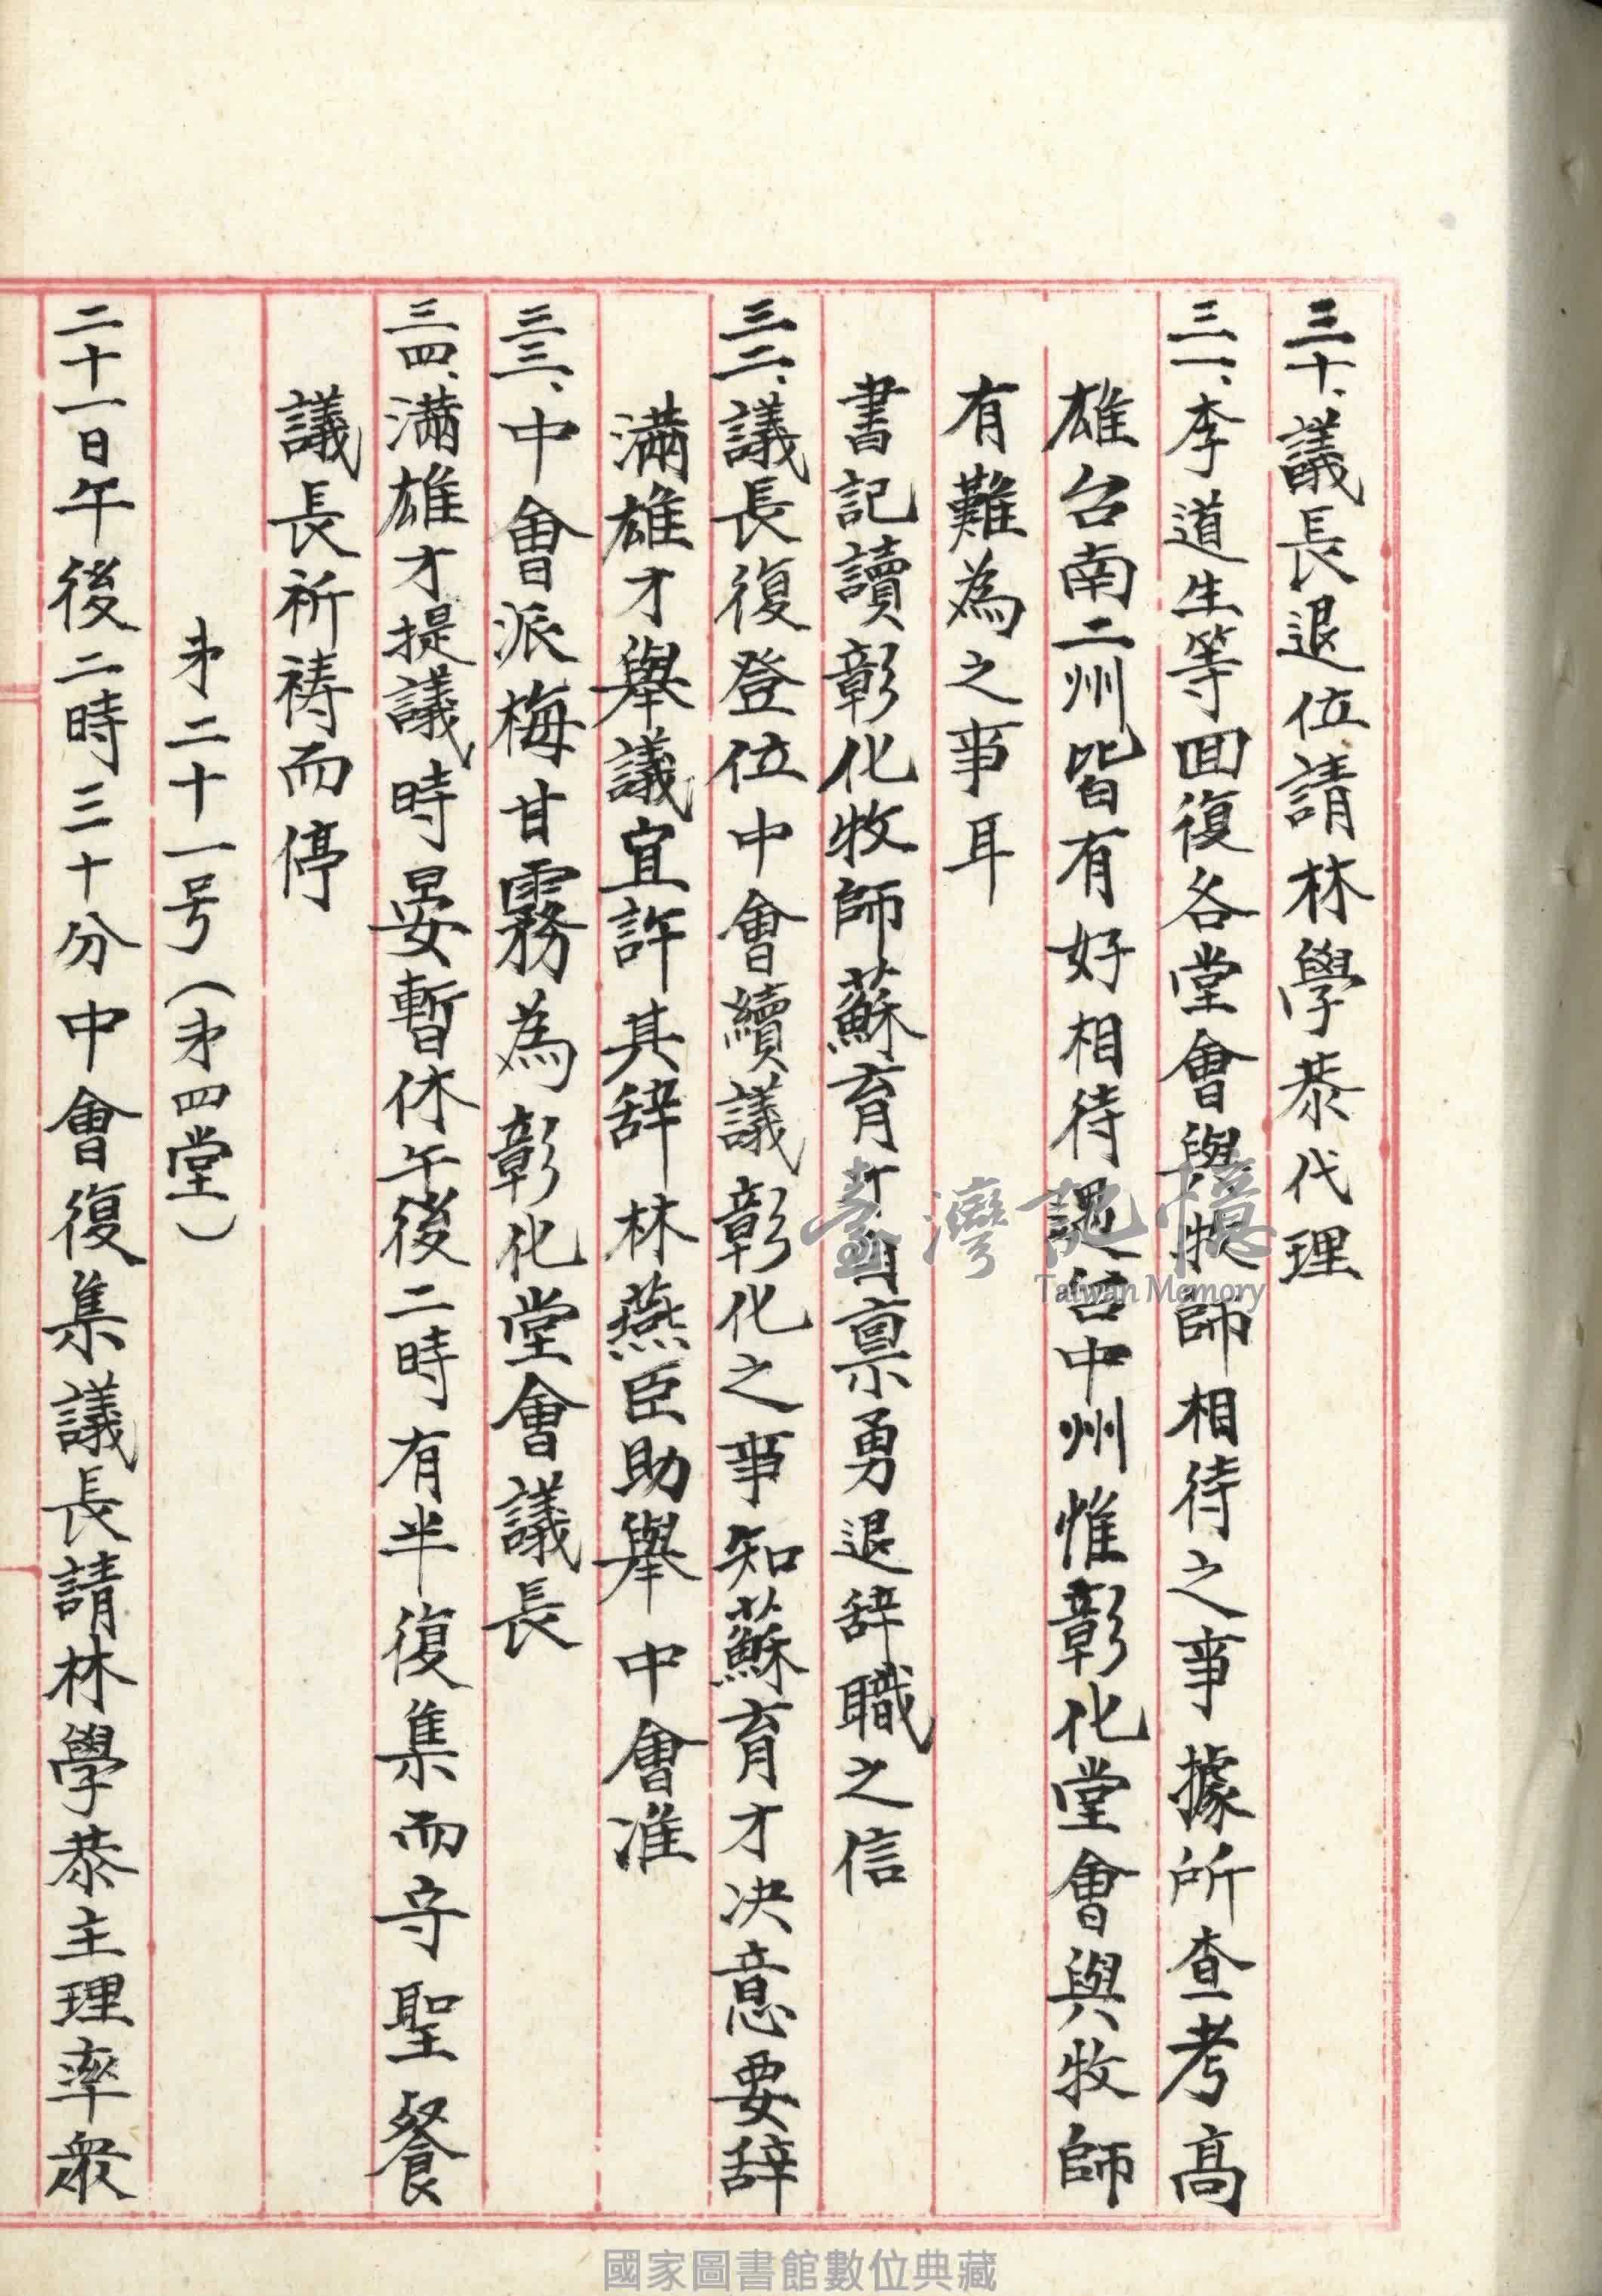 三十、議長退位請林學恭代理
三一、李道生等囬復各堂會與牧師相待之事據所查考高
雄台南二州皆有好相待講台中州惟彰化堂會與牧師
有難為之事耳
書記讀彰化牧師蘇育才自稟勇退辞職之信
三二、議長復登位中會續議彰化之事知蘇育才决意要辞
滿雄才舉議宜許其辞林燕臣助舉中會准
三三、中會派梅甘霧為彰化堂會議長
三四、滿雄才提議時晏暫休午後二時有半復集而守聖餐
議長祈禱而停
第二十一号(第四堂)
二十一日午後二時三十分中會復集議長請林學恭主理率衆
臺灣記憶
Taiwan Memory
國家圖書館數位典藏